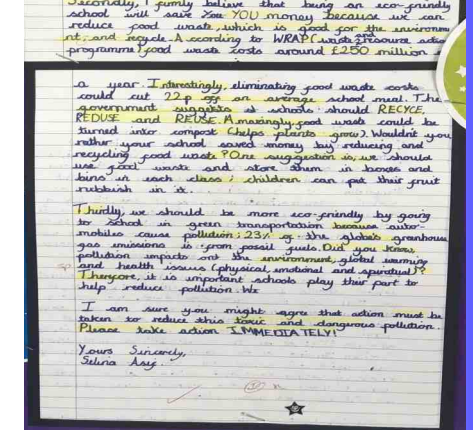 Secondly, I firmly believe that being an eco-friendly
school will save You YOU money because we can
reduce food waste, which is good for the environme
nt, and recycle. According to WRAP (waste and resource action
programme) food waste costs around £250 million
a year. Interestingly, eliminating food waste costs
could cut 22p off an average school meal. The
government suggests at schools should RECYCE,
REDUSE and REUSE. Amazingly, food waste could be
turned into compost (helps plants grow). Wouldn't you
rather your school saved money by reducing and
recycling food waste? One suggestion is, we should
use food waste and store them in boxes and
bins in each class; children can put their fruit
rubbish in it.
Thirdly, we should be more eco-friendly by going
to school in green transportation because auto-
mobiles cause pollution: 23% of the globe's greenhouse
gas emissions is from fossil fuels. Did you know,
pollution impacts ont the environment, global warming
and health issues (physical, emotional and spiratual)?
Therefore, it is important schools play their part to
help reduce pollution. We
I am sure you might agree that action must be
taken to reduce this toxic and dangerous pollution.
Please take action IMMEDIATELY!
Yours Sincerely,
Selina